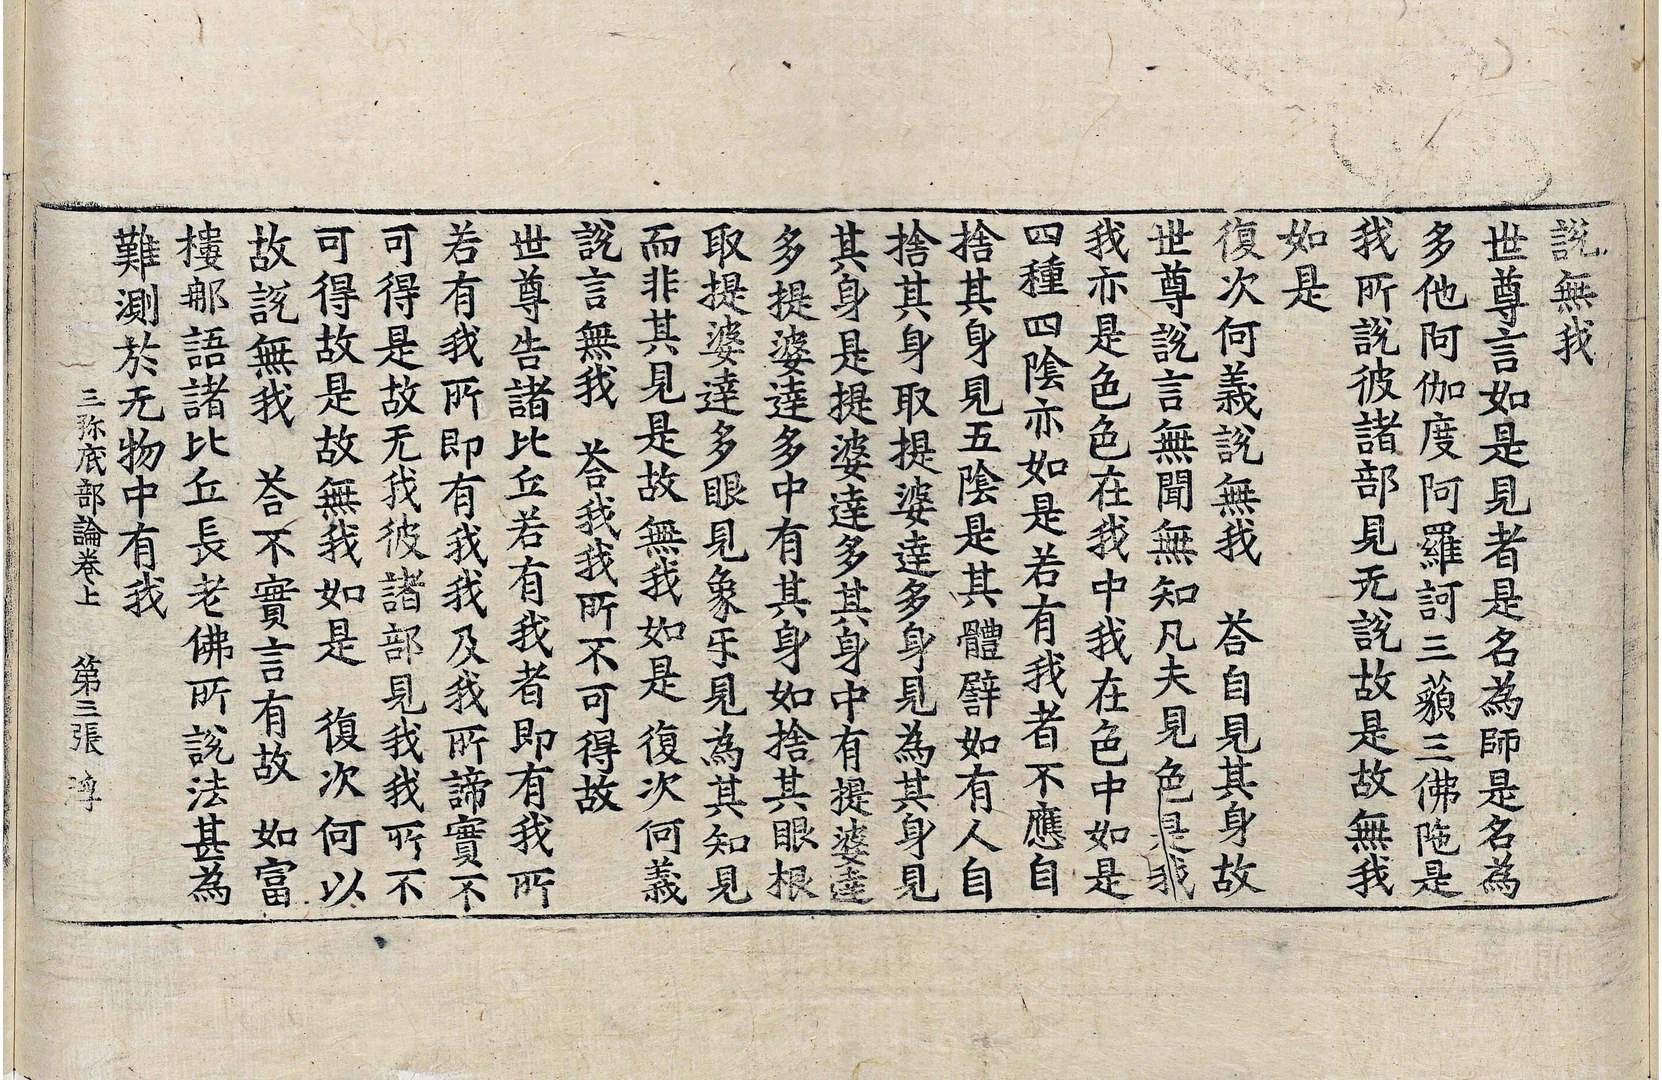 說無我
世尊言如是見者是名為師是名為
多他阿伽度阿羅訶三藐三佛陁是
我所說彼諸部見无說故是故無我
如是
復次何義說無我　荅自見其身故
世尊說言無聞無知凡夫見色是我
我亦是色色在我中我在色中如是
四種四陰亦如是若有我者不應自
捨其身見五陰是其體譬如有人自
捨其身取提婆達多身見為其身見
其身是提婆達多其身中有提婆達
多提婆達多中有其身如捨其眼根
取提婆達多眼見象牙見為其知見
而非其見是故無我如是　復次何義
說言無我　荅我我所不可得故
世尊告諸比丘若有我者即有我所
若有我所即有我我及我所諦實不
可得是故无我彼諸部見我我所不
可得故是故無我如是　復次何以
故說無我　荅不實言有故　如富
樓那語諸比丘長老佛所說法甚為
難測於无物中有我
三弥底部論卷上　第三張　淳